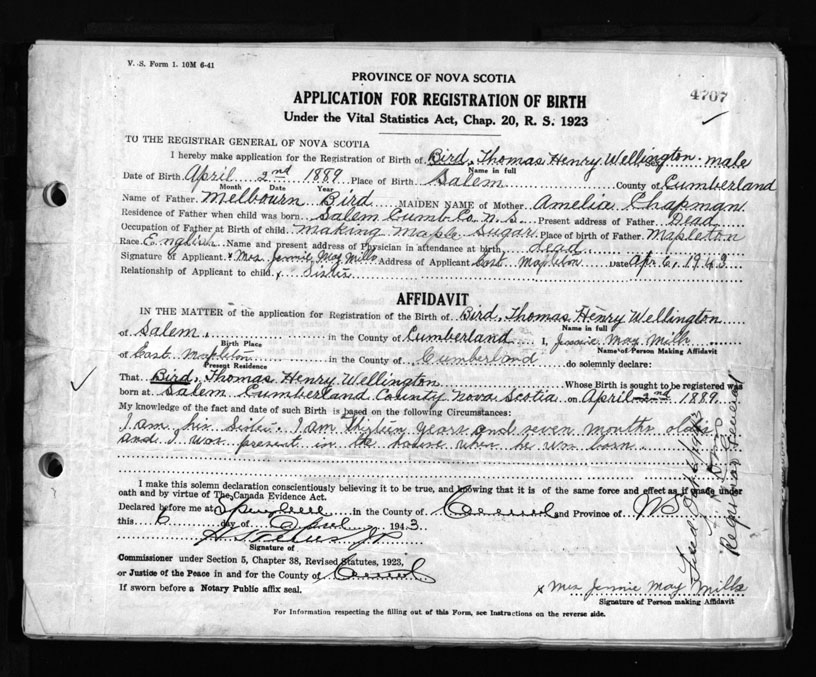 V. S. Form 1. 10M 6-41
PROVINCE OF NOVA SCOTIA
4707
APPLICATION FOR REGISTRATION OF BIRTH
Under the Vital Statistics Act, Chap. 20, R. S. 1923
TO THE REGISTRAR GENERAL OF NOVA SCOTIA
I hereby make application for the Registration of Birth of Bird, Thomas Henry Wellington. male
Name in full
Date of Birth April 2nd 1889 Place of Birth Salem County of Cumberland
Month Date Year
Name of Father Melbourn Bird MAIDEN NAME of Mother Amelia Chapman
Residence of Father when child was born Salem Cumb Co. N. S. Present address of Father Dead
Occupation of Father at Birth of child making Maple Sugar Place of birth of Father Mapleton
Race English Name and present address of Physician in attendance at birth dead
Signature of Applicant x Mrs Jennie May Mills Address of Applicant East Mapleton Date Apr 6, 1943
Relationship of Applicant to child Sister
AFFIDAVIT
IN THE MATTER of the application for Registration of the Birth of Bird, Thomas Henry Wellington
Name in full
of Salem in the County of Cumberland I, Jennie May Mills
Birth Place Name of Person Making Affidavit
of East Mapleton in the County of Cumberland do solemnly declare:
Present Residence
That Bird, Thomas Henry Wellington Whose Birth is sought to be registered was
born at Salem Cumberland County Nova Scotia on April 2nd 1889
My knowledge of the fact and date of such Birth is based on the following Circumstances:
I am his Sister. I am thirteen years and seven months older
and I was present in the house when he was born
I make this solemn declaration conscientiously believing it to be true, and knowing that it is of the same force and effect as if made under
oath and by virtue of The Canada Evidence Act.
Declared before me at Springhill in the County of and Province of NS
this 6 day of April 1943
JP
Signature of
Commissioner under Section 5, Chapter 38, Revised Statutes, 1923,
or Justice of the Peace in and for the County of
If sworn before a Notary Public affix seal.
x Mrs Jennie May Mills
Signature of Person making Affidavit
For Information respecting the filling out of this Form, see Instructions on the reverse side.
Registrar General